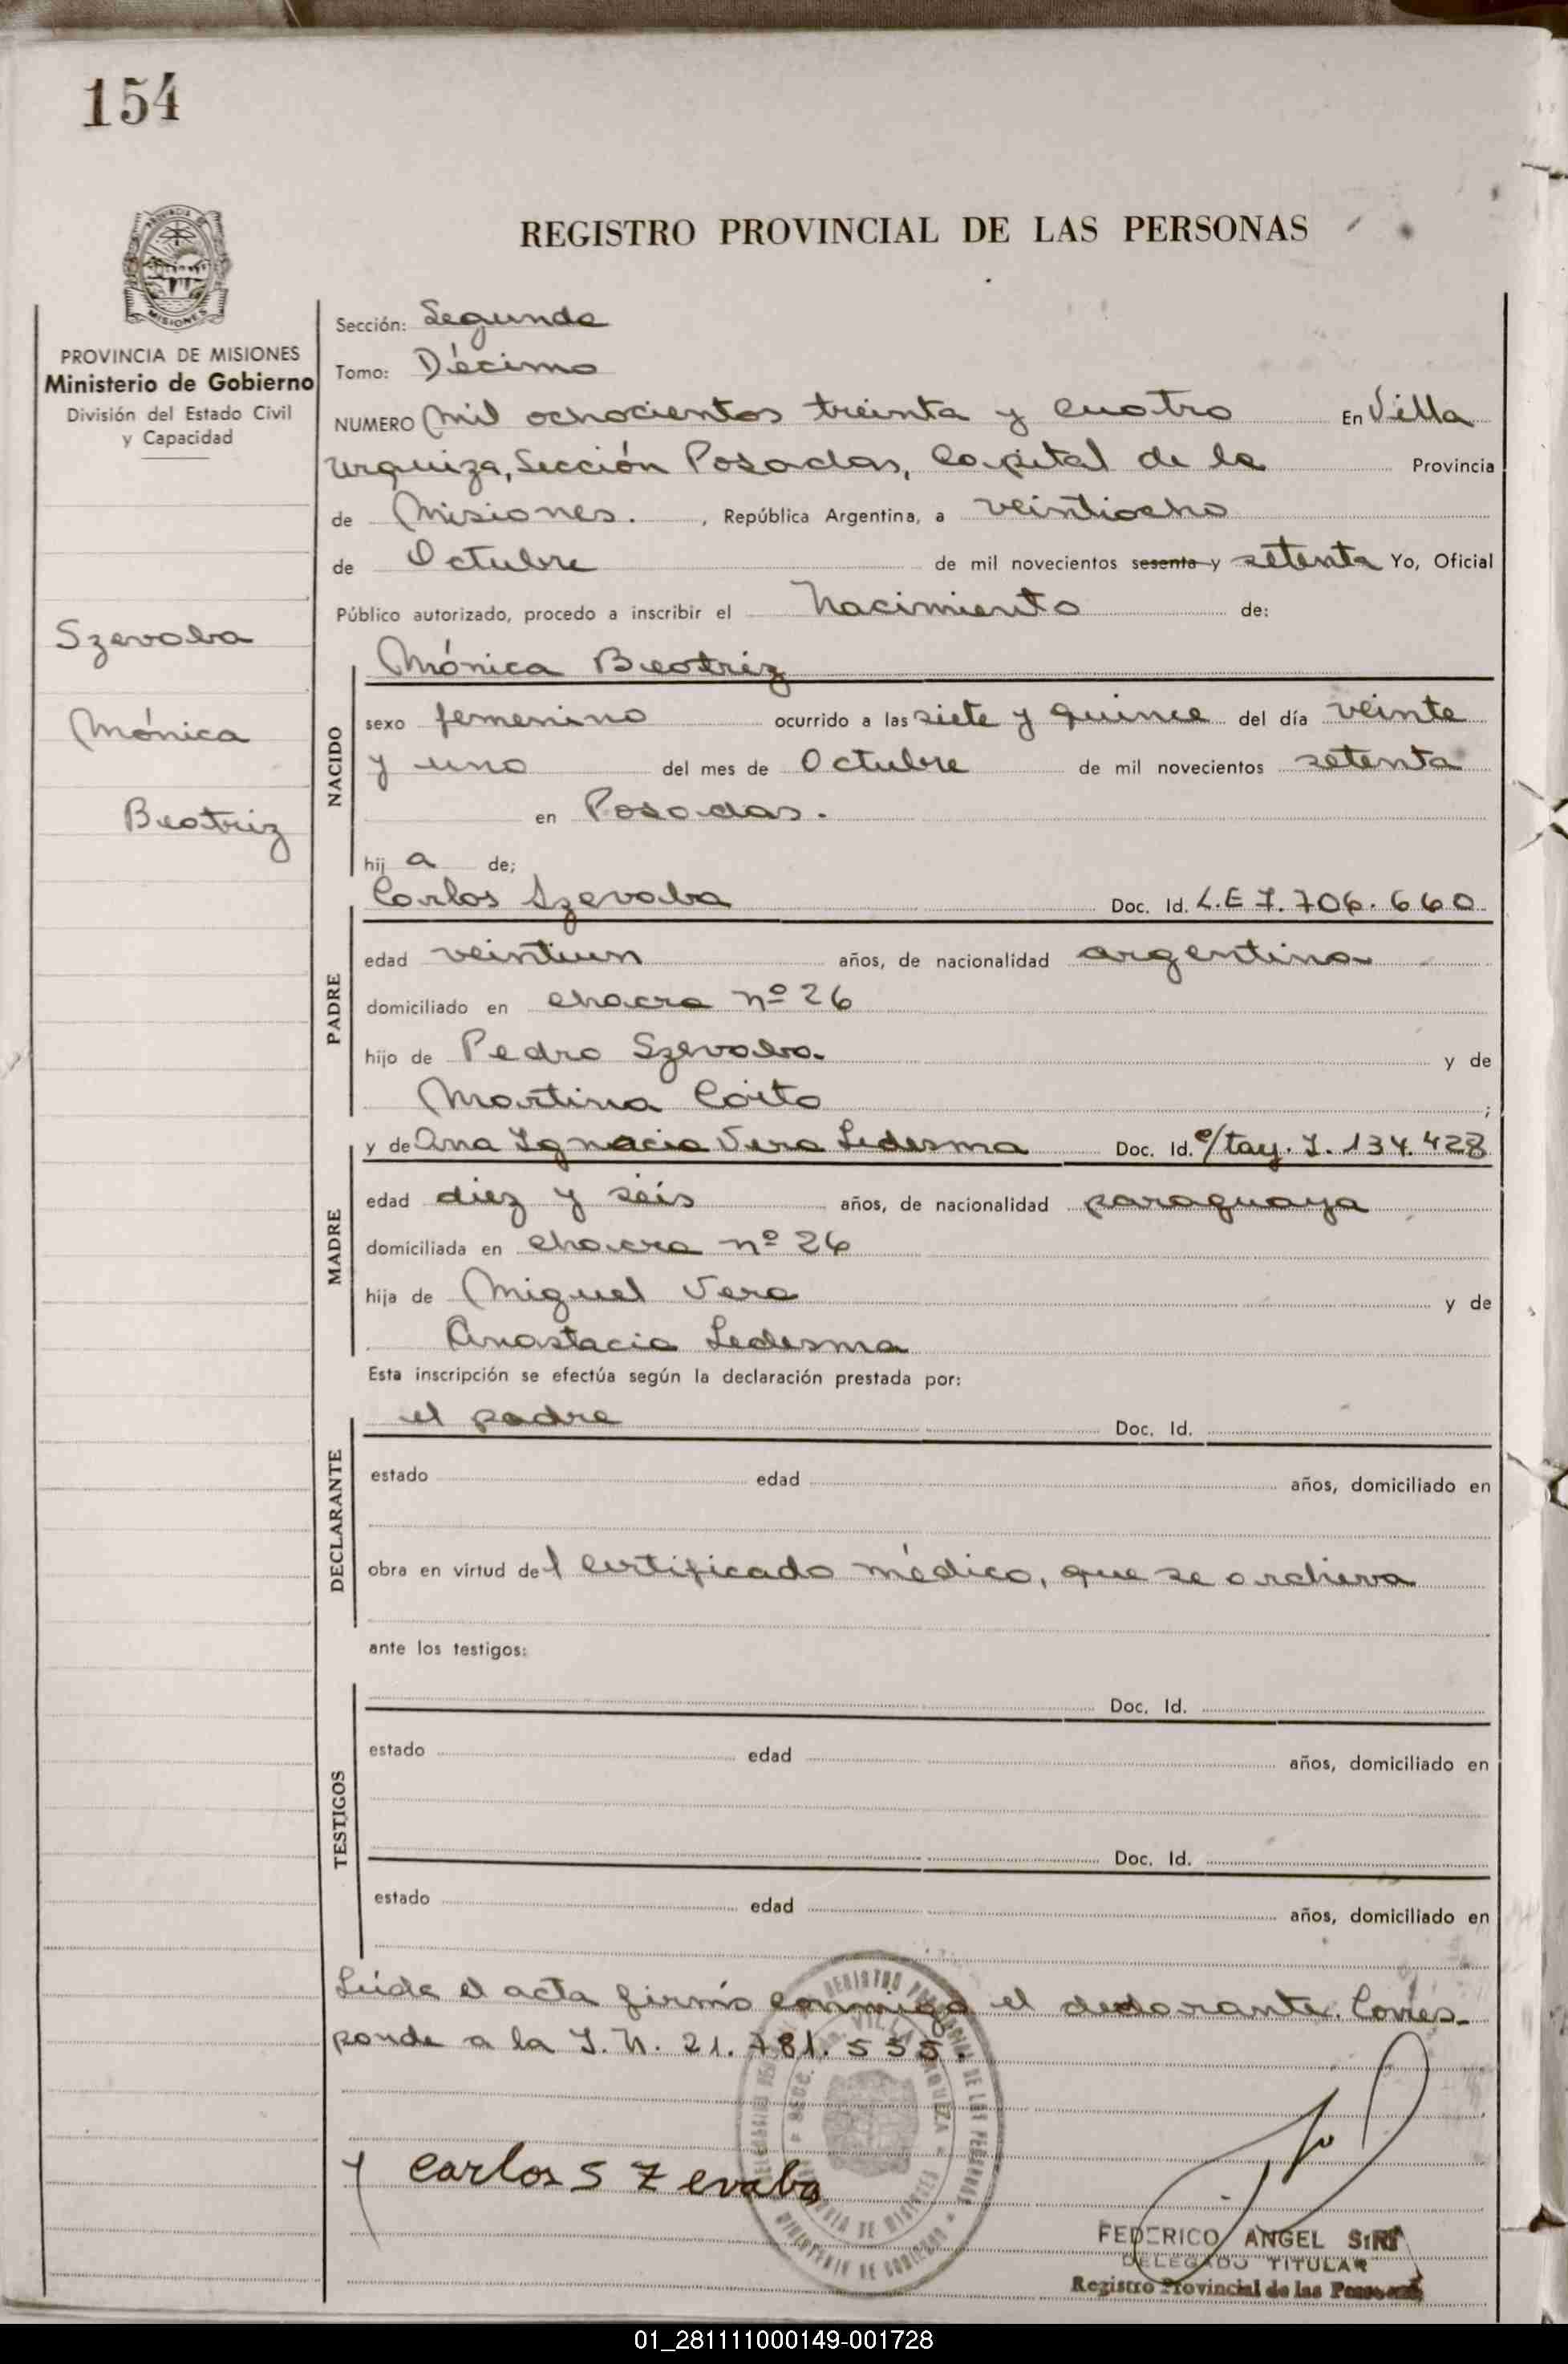 154
REGISTRO PROVINCIAL DE LAS PERSONAS
PROVINCIA DE MISIONES
Ministerio de Gobierno
División del Estado Civil
y Capacidad
Szevaba
Mónica
Beatriz
Sección: Segunda
Tomo: Décimo
NUMERO Mil ochocientos treinta y cuatro En Villa
Urquiza, Sección Posadas, Capital de la Provincia
de Misiones. , República Argentina, a veintiocho
de Octubre de mil novecientos sesenta y setenta Yo, Oficial
Público autorizado, procedo a inscribir el Nacimiento de:
NACIDO
Mónica Beatriz
sexo femenino ocurrido a las siete y quince del día veinte
y uno del mes de Octubre de mil novecientos setenta
en Posadas.
hij a de;
PADRE
Carlos Szevaba Doc. Id. L.E 7.706.660
edad veintiun años, de nacionalidad argentina
domiciliado en chacra nº 26
hijo de Pedro Szevaba. y de
Martina Coito ;
MADRE
y de Ana Ignacia Vera Ledesma Doc. Id. 1.134.428
edad diez y seis años, de nacionalidad paraguaya
domiciliada en chacra nº 26
hija de Miguel Vera y de
Anastacia Ledesma
Esta inscripción se efectúa según la declaración prestada por:
DECLARANTE
el padre Doc. Id.
estado edad años, domiciliado en
obra en virtud del certificado médico, que se archiva
ante los testigos:
TESTIGOS
Doc. Id.
estado edad años, domiciliado en
Doc. Id.
estado edad años, domiciliado en
Leída el acta firmó conmigo el declarante. Corres-
ponde a la I. N. 21.781.535.
Carlos Szevaba
FEDERICO ANGEL SIRI
DELEGADO TITULAR
Registro Provincial de las Personas
01_281111000149-001728